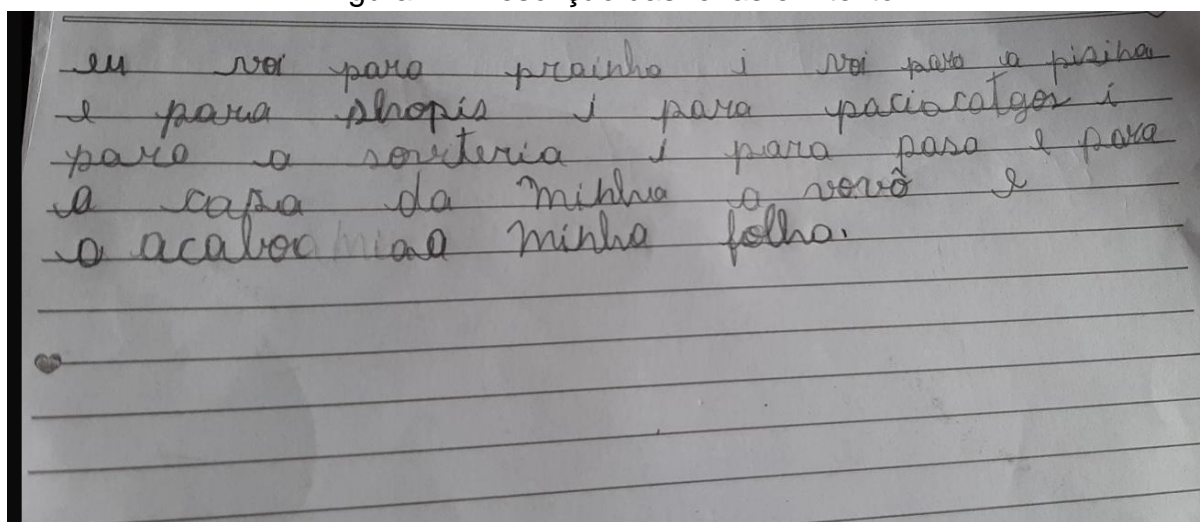 eu voi para prainha i voi para a pisina
e para shopis i para paciacolgos i
para a sorvteria i para pasa e para
a casa da minhha a vovô e
o acaboc a minha folha.